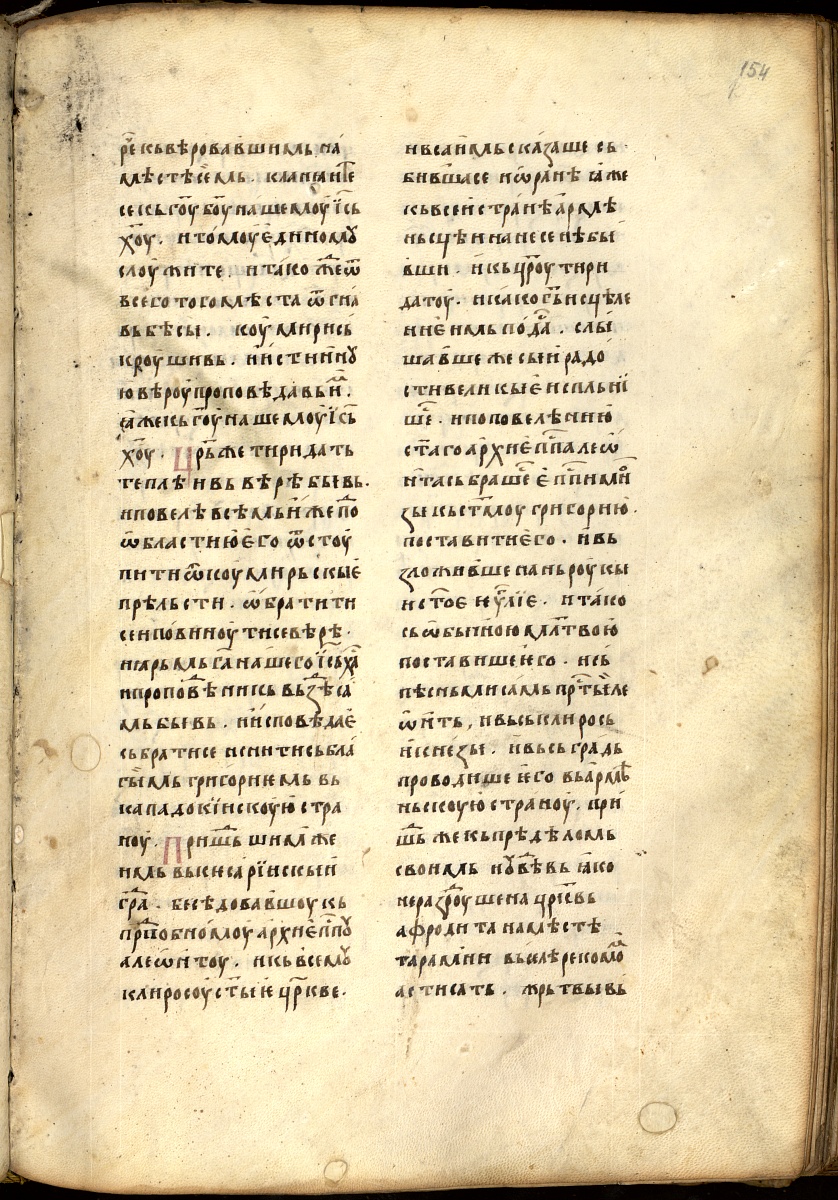 154
рⷱ҇е къвѣровавшимь на
мѣстѣсемь · кланꙗитⷷе
секьгоу҃ боу҃ нашемоу і҆с҃ь
хоу҃ · итомоу є҆диномꙋ
слоужите · итако жⷣе ѿ
всего того мѣста ѿгна
вьбѣсы · коумирись
кроушивь · и҆и҆стиннꙋ
ювѣроу проповѣдавьиⷨ ·
ꙗжекьгоу҃ нашемоу і҆с҃ь
хоу҃ · Црь҃ же тиридать
теплѣи вьвѣрѣ бывь ·
иповелѣ всѣмь и҆же поⷣ
ѡ҆бластию є҆го ѿстоу
пити ѿкоумирьскыє
прѣльсти · ѡ҆братити
сеиповиноутисевѣрѣ ·
иꙗрьмьга҃ нашего і҆с҃ьха҃
ипроповѣⷣникь вьзⷣѣса
мьбывь · и҆исповѣдає
сьбратисе иснитисьбла
гы҃мь григориемь вь
кападокїискоую стра
ноу · Пришⷣьшимже
имь вькесарїискыи
граⷣ · бесѣдовавшоу кь
прⷣпобномоу архиеп҃пꙋ
алеѡ҆нтоу · икьвсемꙋ
клиросоу ст҃ыѥ цр҃кве ·
ивсаимьсказаше сь
бившасе иѡ҆ранѣ ꙗже
кьвсеистранѣ армѣ
ньсцѣи нанесенѣбы
вши · и҆кьцр҃оу тири
датоу · икако гь҃ исцѣле
ниє имь подⷣа · слы
шавше жесьи҆ радо
сти великыє испльнї
шеⷭ · ипоповелѣнию
ст҃аго архиєп҃па леѡ҆
нтасьбрашеⷭ є҆п҃пимнѡ
зы кьст҃моу григорию ·
поставитиєго · и҆вь
зложившенаньроукы
ист҃оє єѵⷢлїе · итако
сьѡ҆бычною мл҃твою
поставишеи҆го · исъ
пѣсньми самь прⷣстыиле
ѡ҆нть, ивьськлирось
и҆скнезы · и҆вьсьградь
проводише и҆го вьармѣ
ньскоую страноу · при
шⷣь жекьпрѣдѣломь
своимь иувѣвь ꙗко
неразⷣроушена цр҃квь
афродита намѣстѣ
тарамини выселѣрекомоⷨ
астисать · жрьтвывь